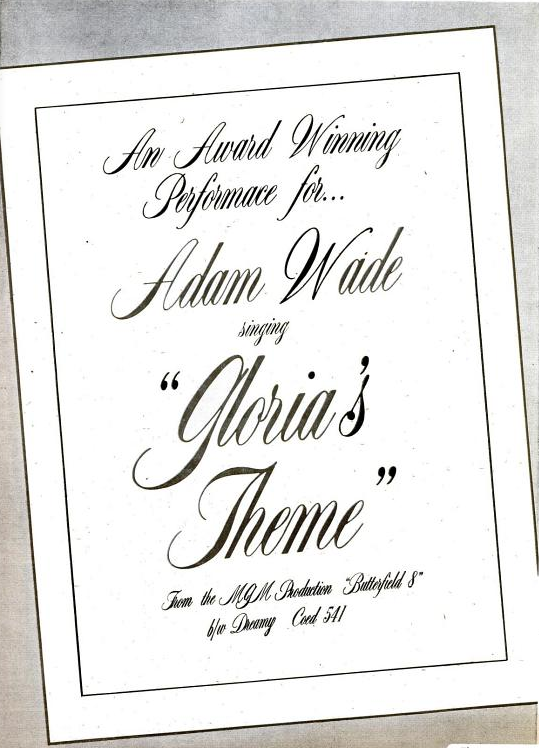 An Award Winning
Performace for...
Adam Wade
singing
"Gloria's
Theme"
From the MGM Production "Butterfield 8"
b/w Dreamy Coed 541